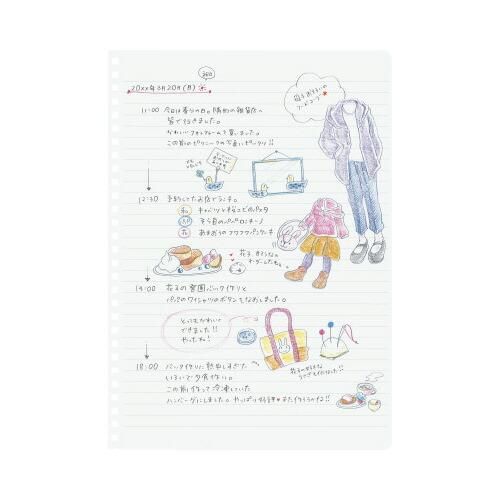 20xx年3月20日(月)
11:00 今日は春分の日。隣町の雑貨店へ
皆で行きました。
かわいいフォトフレームを買いました。
この前のピクニックの写真にピッタリ!!
12:30 予約してたお店でランチ。
キャベツと桜エビのパスタ
そら豆のペペロンチーノ
花 あまおうのフワフワパンケーキ
14:00 花子の通園バッグ作りと
パパのワイシャツのボタンをなおしました。
とってもかわいく
できました!!
やったね!
18:00 バッグ作りに熱中しすぎた
いそいで夕食作り。
この前作って冷凍していた
ハンバーグにしました。やっぱり好評♥また作ろうかな!!